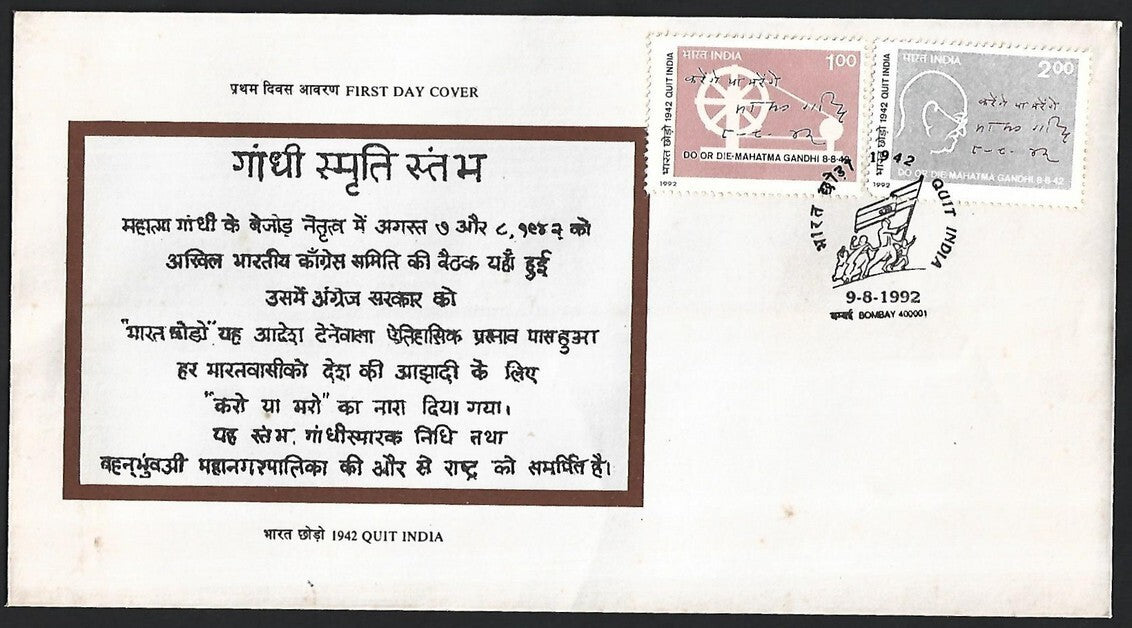 प्रथम दिवस आवरण FIRST DAY COVER
गांधी स्मृति स्तंभ
महात्मा गांधी के बेजोड़ नेतृत्व में अगस्त ७ और ८, १९४२ को
अखिल भारतीय काँग्रेस समिति की बैठक यहाँ हुई
उसमें अंग्रेज सरकार को
"भारत छोडो" यह आदेश देनेवाला ऐतिहासिक प्रस्ताव पास हुआ
हर भारतवासीको देश की आझादी के लिए
"करो या मरो" का नारा दिया गया।
यह स्तंभ, गांधीस्मारक निधि तथा
महानगरपालिका की और से राष्ट्र को समर्पित है।
भारत छोड़ो 1942 QUIT INDIA
भारत INDIA 1.00
भारत छोड़ो 1942 QUIT INDIA
करेंगे या मरेंगे
८-८-४२
DO OR DIE-MAHATMA GANDHI 8-8-42
1992
भारत INDIA 2.00
भारत छोड़ो 1942 QUIT INDIA
करेंगे या मरेंगे
८-८-४२
DO OR DIE-MAHATMA GANDHI 8-8-42
1992
भारत छोड़ो 1942 QUIT INDIA
9-8-1992
बम्बई BOMBAY 400001